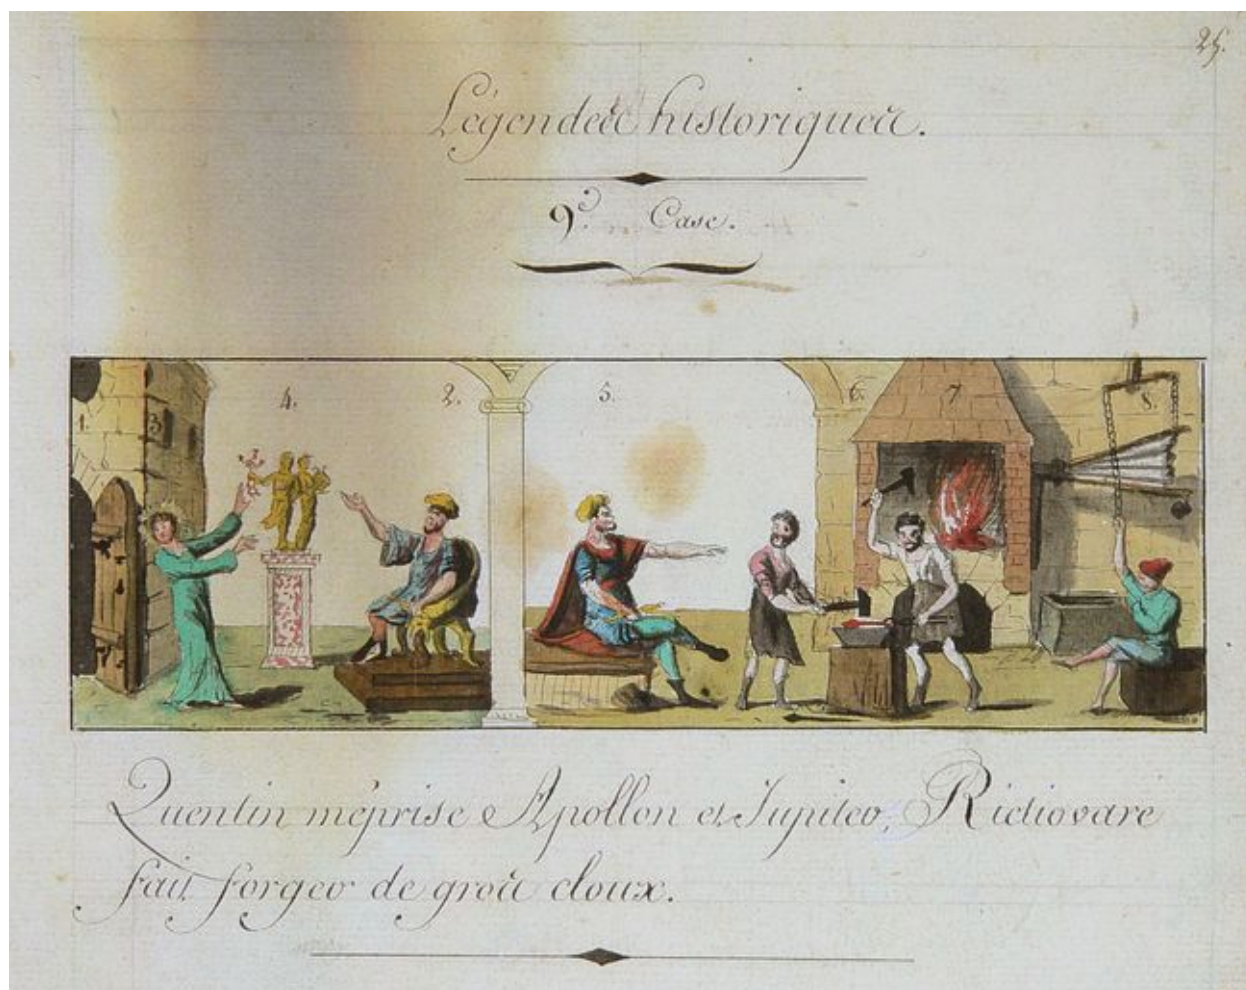 25.
Légendes historiques.
9e. Case.
1. 3 4. 2. 5. 6. 7 8.
Quentin méprise Apollon et Jupiter, Rictiovare
fait forger de gros cloux.